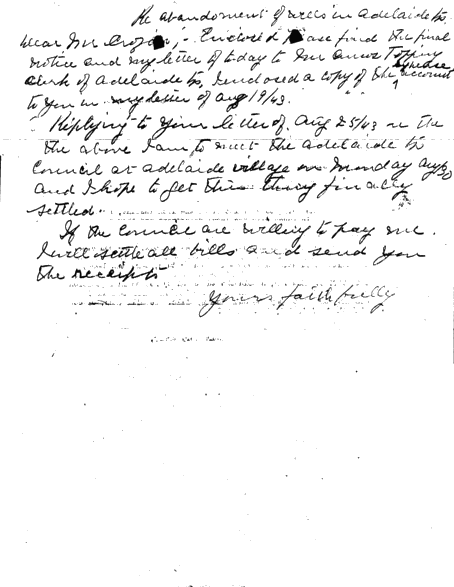 Re abandonment of wells in Adelaide Tp.
Dear Mr Crozier, - Enclosed Please find the final
notice and my letter of today to Mr Topping
clerk of Adelaide Tp, I enclosed a copy of the account
to you in my letter of Aug 19/43.
Replying to your letter of. Aug 25/43 re the
the above I am to meet the Adelaide Tp
Council at Adelaide village on Monday Aug 30
and I hope to get this thing finally
settled.
If the council are willing to pay me.
I will settle all bills and send you
the receipts
Yours faithfully